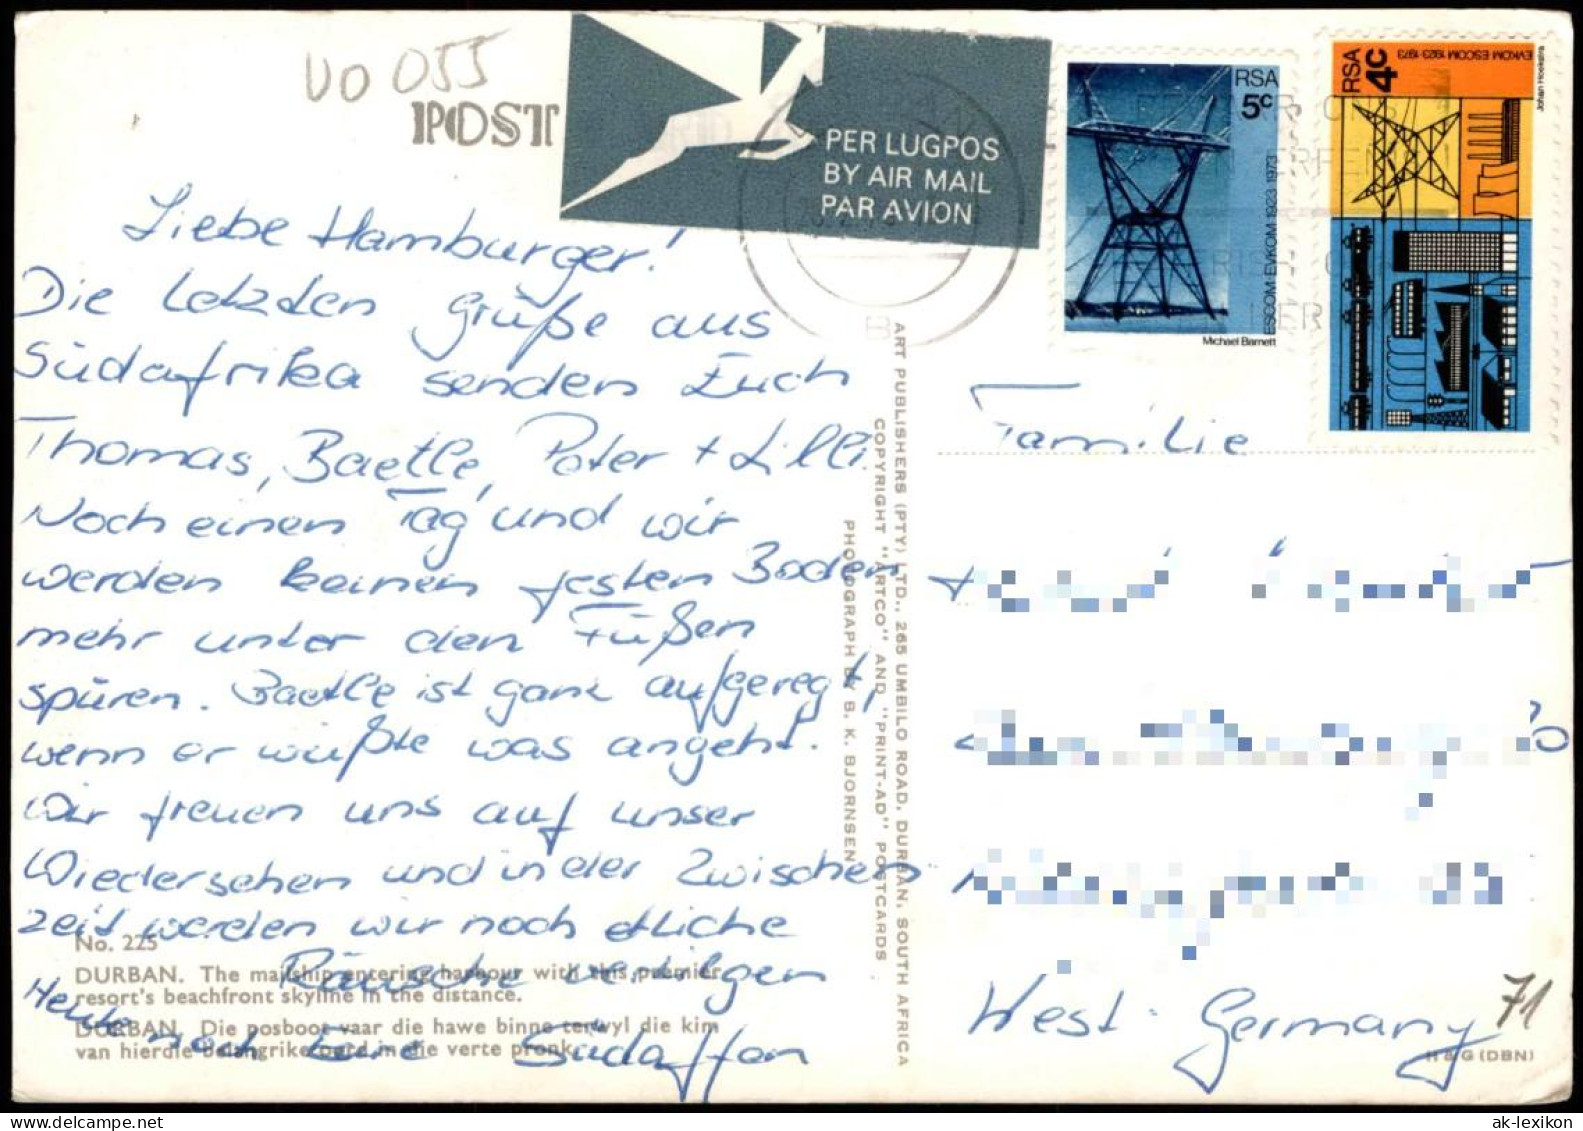 VO 055
POST
PER LUGPOS
BY AIR MAIL
PAR AVION
RSA
5c
ESCOM-EVKOM 1923 1973
Michael Barnett
RSA
4c
EVKOM ESCOM 1923-1973
Johan Hoekstra
Liebe Hamburger!
Die letzten Grüße aus
Südafrika senden Euch
Thomas, Baetle, Peter + Lilli
Noch einen Tag und wir
werden keinen festen Boden
mehr unter den Füßen
spüren. Baetle ist ganz aufgeregt,
wenn er wüßte was angeht.
Wir freuen uns auf unser
Wiedersehen und in der Zwischen
zeit werden wir noch etliche
Räusche vertilgen
Heute noch Eure Südaffen
No. 225
DURBAN. The mailship entering harbour with this premier
resort's beachfront skyline in the distance.
DURBAN. Die posboot vaar die hawe binne terwyl die kim
van hierdie belangrike oord in die verte pronk.
ART PUBLISHERS (PTY) LTD., 265 UMBILO ROAD, DURBAN, SOUTH AFRICA
COPYRIGHT "ARTCO" AND "PRINT-AD" POSTCARDS
PHOTOGRAPH BY B. K. BJORNSEN
Familie
West-Germany
71
H & G (DBN)
ak-lexikon